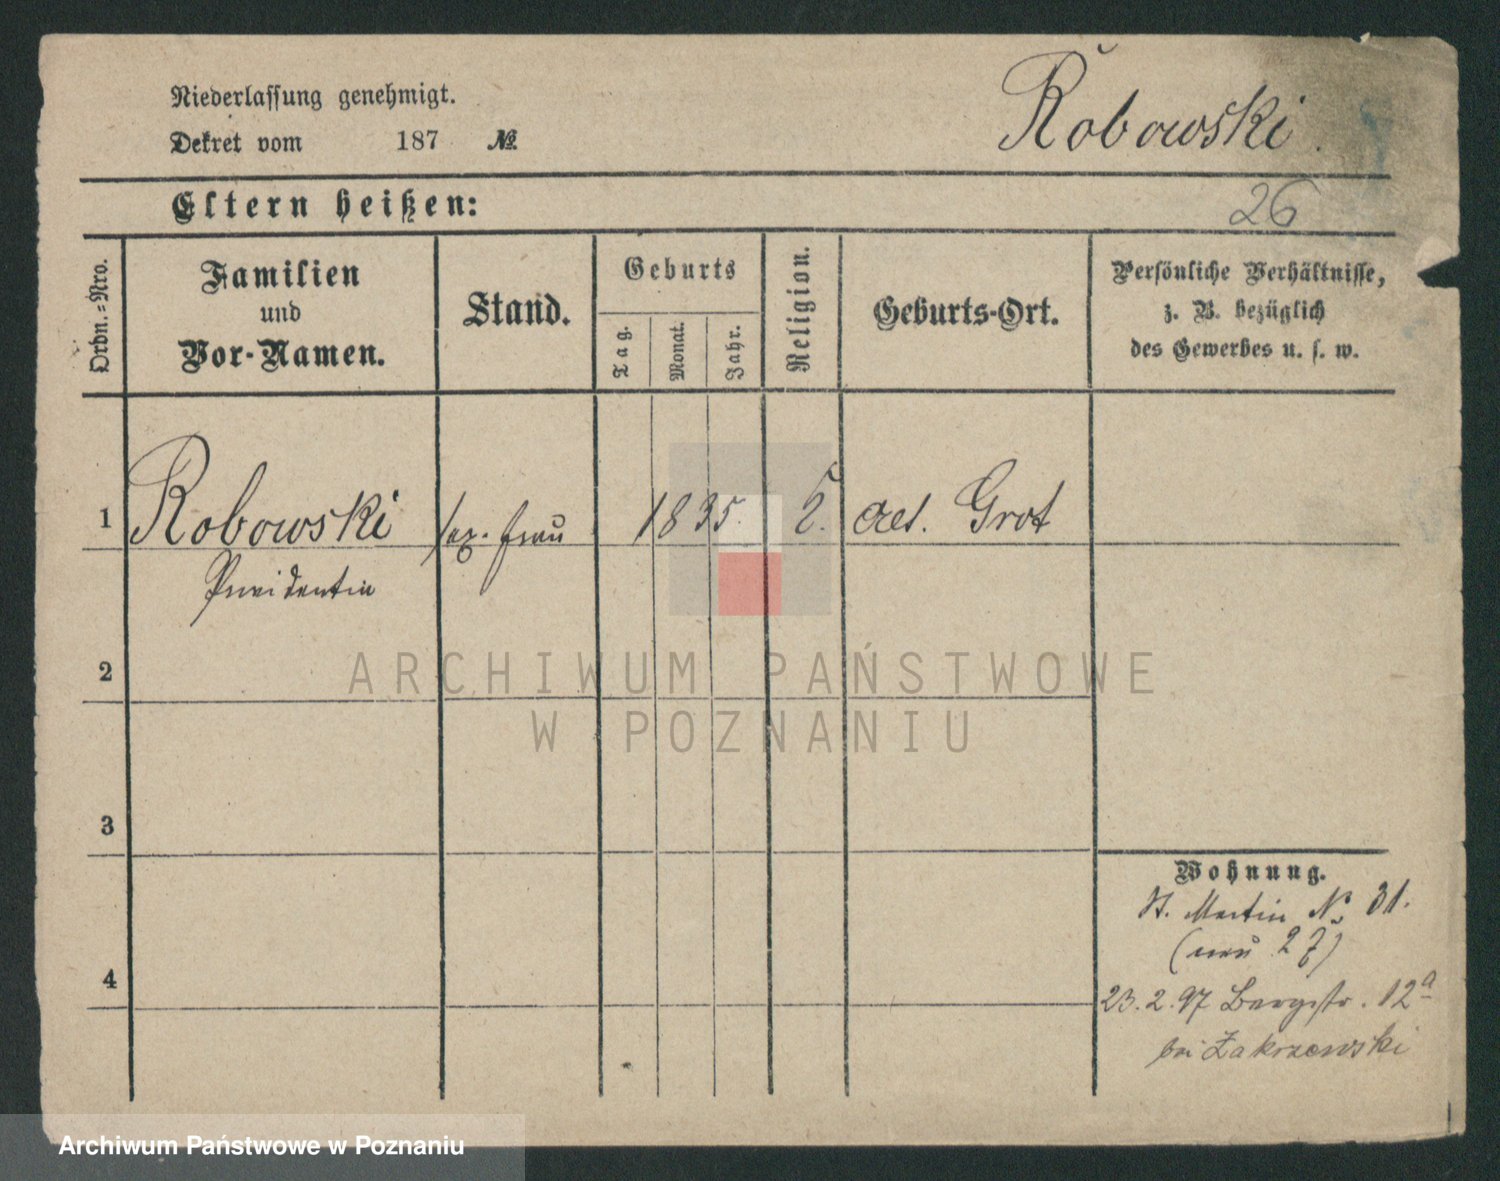 Niederlassung genehmigt.
Dekret vom 187 №
Robowski.
Eltern heißen:
26
Ordn.-Nro.
Familien
und
Vor-Namen.
Stand.
Geburts
Tag.
Monat.
Jahr.
Religion.
Geburts-Ort.
Persönliche Verhältnisse,
z. B. bezüglich
des Gewerbes u. s. w.
1 Robowski frau 1835. Grot
2
3
4
Wohnung.
St. Martin № 31.
(neu 27)
23.2.97 Bergstr. 12a
bei Zakrzewski
ARCHIWUM PAŃSTWOWE
W POZNANIU
Archiwum Państwowe w Poznaniu